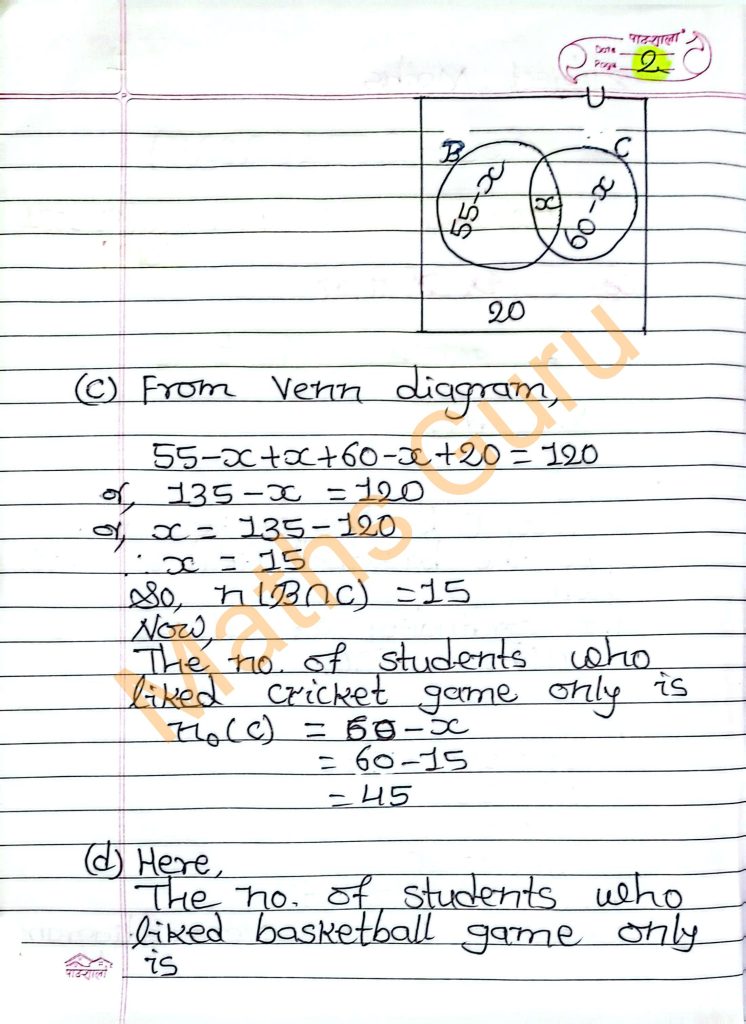 पाठशाला
Date
Page 2
U
B
C
55-x
x
60-x
20
(c) From Venn diagram,
55-x+x+60-x+20 = 120
or, 135-x = 120
or, x = 135-120
∴ x = 15
So, n(B∩C) = 15
Now,
The no. of students who
liked cricket game only is
n₀(C) = 60-x
= 60-15
= 45
(d) Here,
The no. of students who
liked basketball game only
is
पाठशाला
Maths Guru